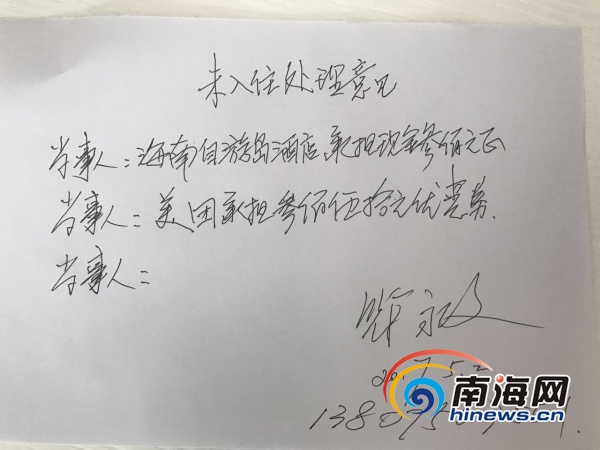 未入住处理意见
当事人：海南自游岛酒店承担现金叁佰元正
当事人：美团承担叁佰伍拾元优惠券.
当事人：
2017.5.2
南海网
hinews.cn